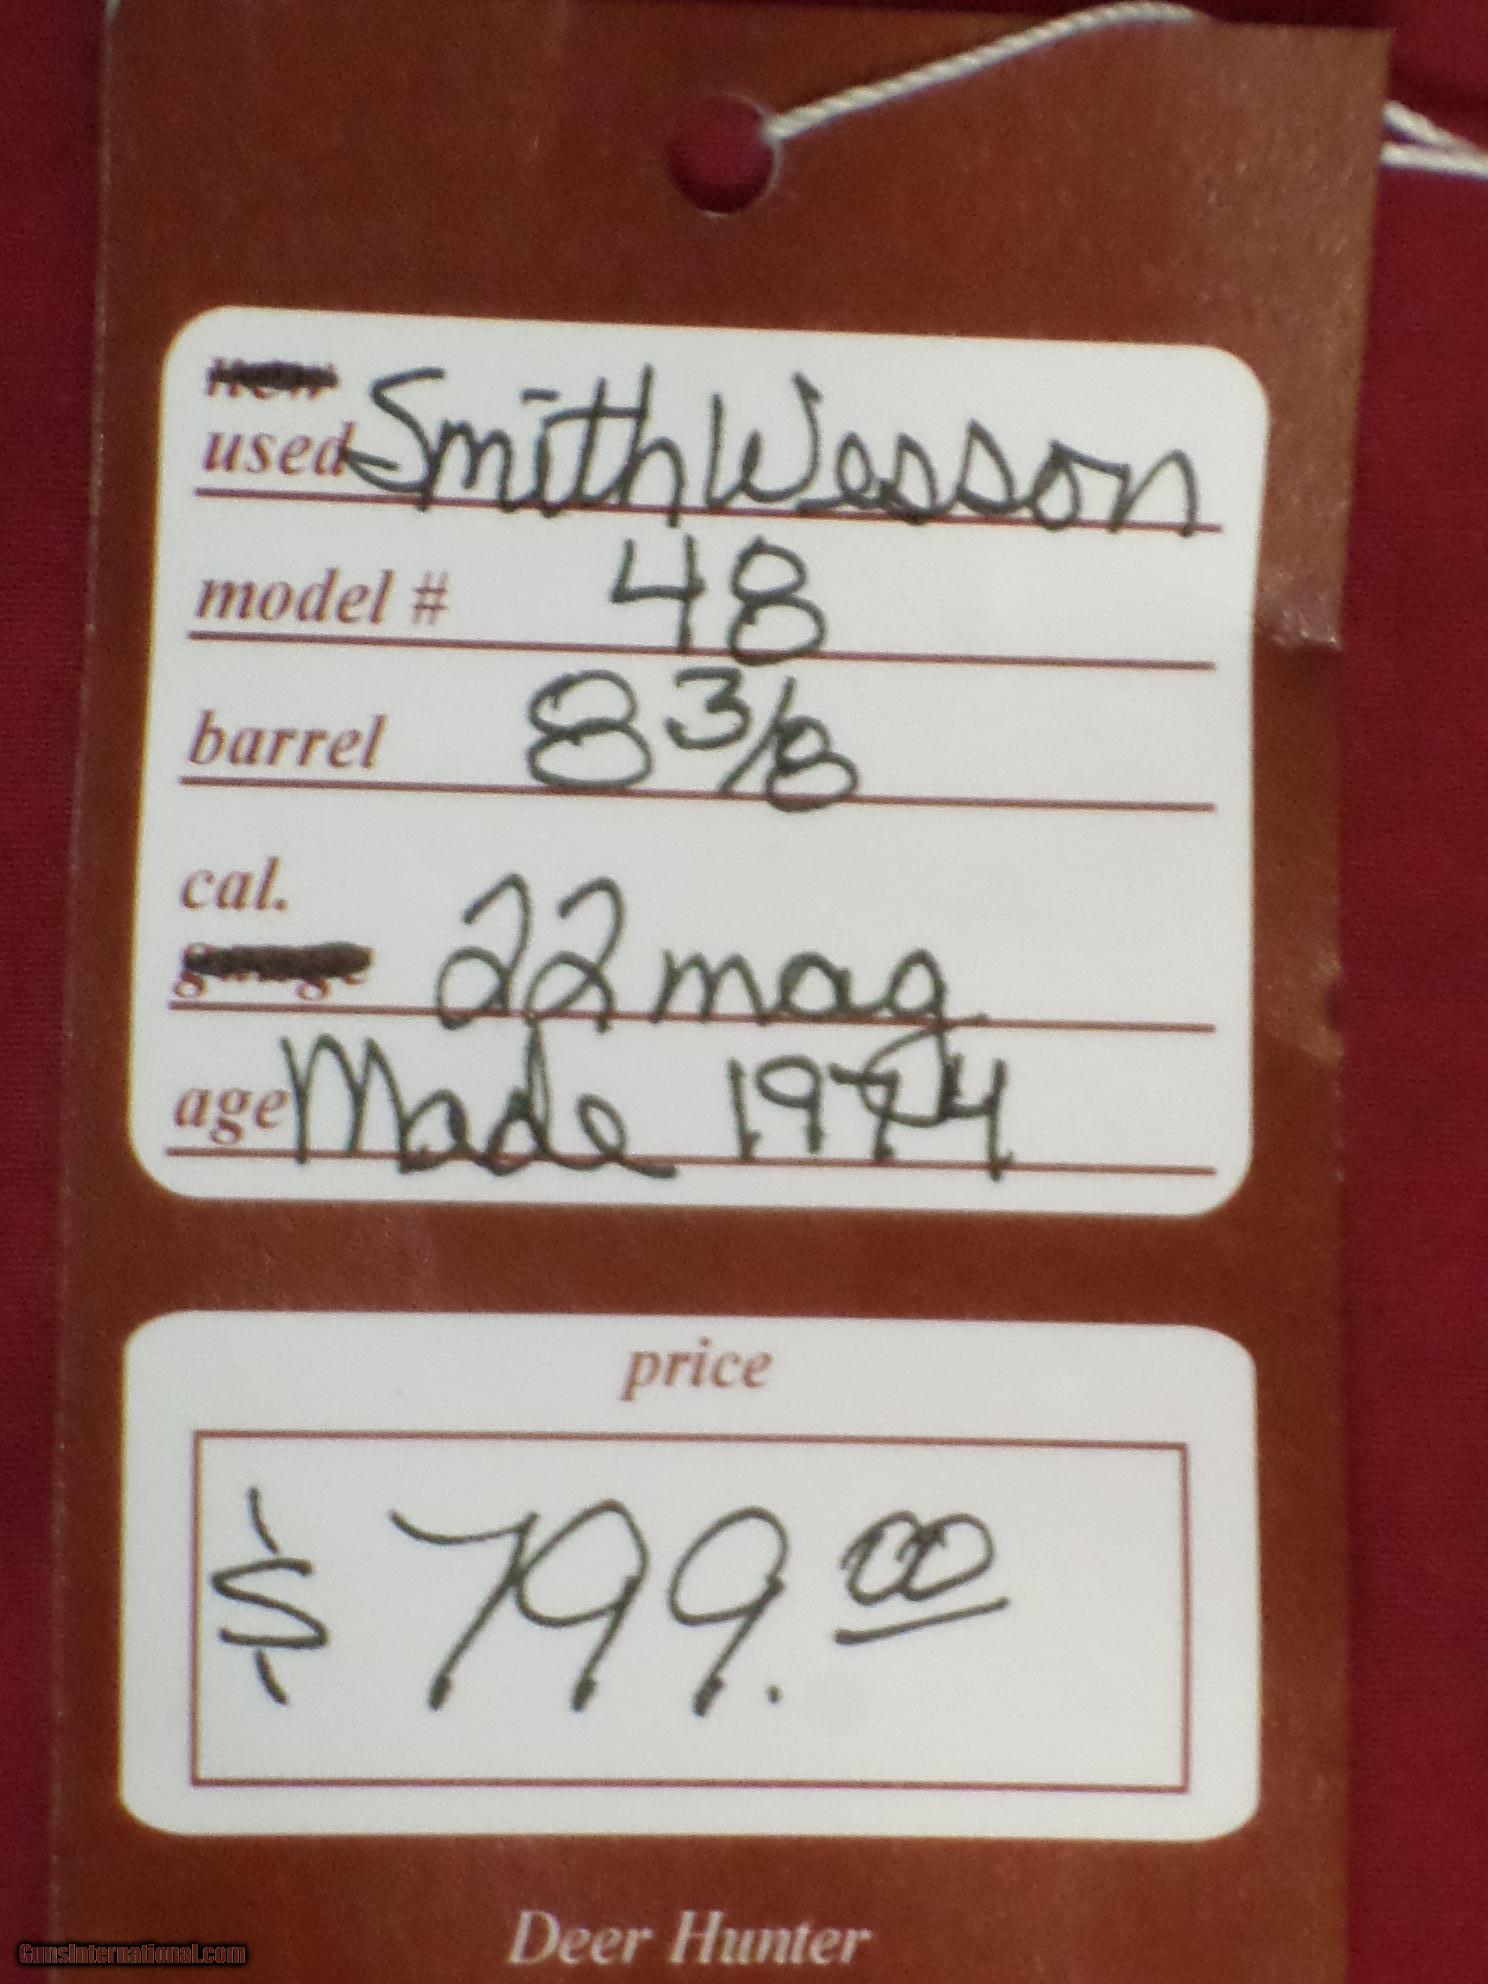 new
used Smith Wesson
model # 48
barrel 8 3/8
cal.
gauge 22 mag
age Made 1974
price
$ 799.00
Deer Hunter
GunsInternational.com